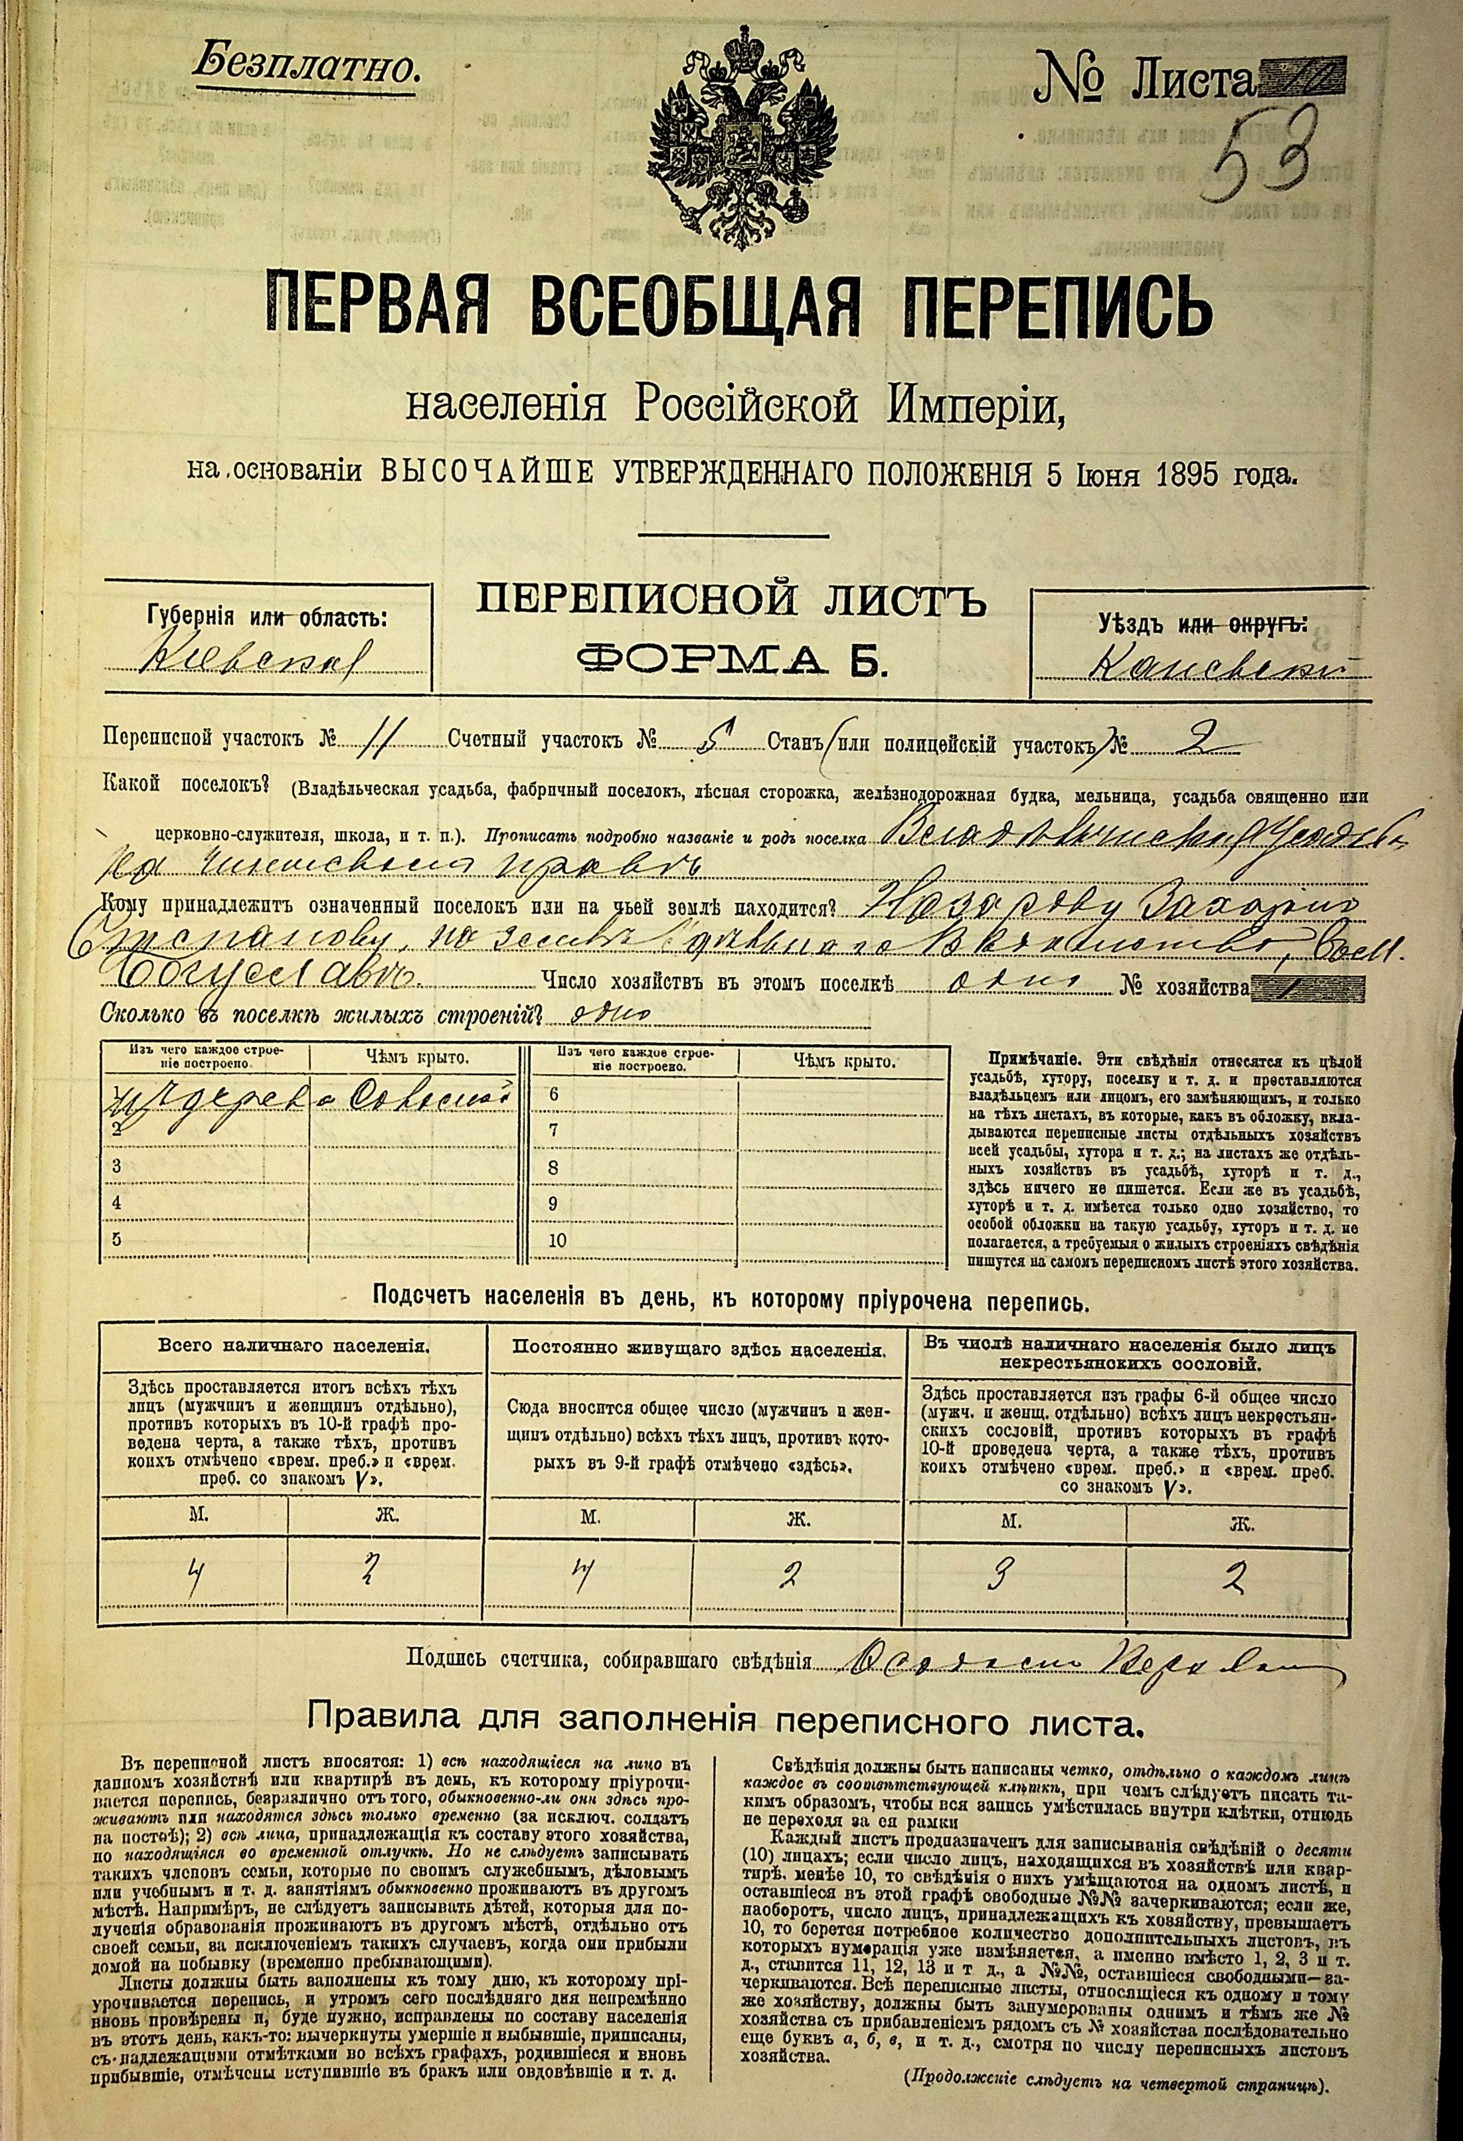 Безплатно.
№ Листа 10
53
ПЕРВАЯ ВСЕОБЩАЯ ПЕРЕПИСЬ
населенія Россійской Имперіи,
на основаніи ВЫСОЧАЙШЕ УТВЕРЖДЕННАГО ПОЛОЖЕНІЯ 5 Іюня 1895 года.
Губернія или область:
Кіевская
ПЕРЕПИСНОЙ ЛИСТЪ
ФОРМА Б.
Уѣздъ или округъ:
Каневскій
Переписной участокъ № 11 Счетный участокъ № 5 Станъ (или полицейскій участокъ) № 2
Какой поселокъ? (Владѣльческая усадьба, фабричный поселокъ, лѣсная сторожка, желѣзнодорожная будка, мельница, усадьба священно или
церковно-служителя, школа, и т. п.). Прописать подробно названіе и родъ поселка Владѣльческая Усадьба
на чиншевомъ правѣ
Кому принадлежитъ означенный поселокъ или на чьей землѣ находится? Назарову Захарію
Степанову, на землѣ Удѣльнаго Вѣдомства, въ м.
Богуславѣ. Число хозяйствъ въ этомъ поселкѣ одно № хозяйства 1
Сколько въ поселкѣ жилыхъ строеній? одно
Изъ чего каждое строе-
ніе построено. Чѣмъ крыто. Изъ чего каждое строе-
ніе построено. Чѣмъ крыто.
изъ дерева Соломой 6
2 7
3 8
4 9
5 10
Примѣчаніе. Эти свѣдѣнія относятся къ цѣлой
усадьбѣ, хутору, поселку и т. д. и проставляются
владѣльцемъ или лицомъ, его замѣняющимъ, и только
на тѣхъ листахъ, въ которые, какъ въ обложку, вкла-
дываются переписные листы отдѣльныхъ хозяйствъ
всей усадьбы, хутора и т. д.; на листахъ же отдѣль-
ныхъ хозяйствъ въ усадьбѣ, хуторѣ и т. д.,
здѣсь ничего не пишется. Если же въ усадьбѣ,
хуторѣ и т. д. имѣется только одно хозяйство, то
особой обложки на такую усадьбу, хуторъ и т. д. не
полагается, а требуемыя о жилыхъ строеніяхъ свѣдѣнія
пишутся на самомъ переписномъ листѣ этого хозяйства.
Подсчетъ населенія въ день, къ которому пріурочена перепись.
Всего наличнаго населенія.
Здѣсь проставляется итогъ всѣхъ тѣхъ
лицъ (мужчинъ и женщинъ отдѣльно),
противъ которыхъ въ 10-й графѣ про-
ведена черта, а также тѣхъ, противъ
коихъ отмѣчено «врем. преб.» и «врем.
преб. со знакомъ V».
Постоянно живущаго здѣсь населенія.
Сюда вносится общее число (мужчинъ и жен-
щинъ отдѣльно) всѣхъ тѣхъ лицъ, противъ кото-
рыхъ въ 9-й графѣ отмѣчено «здѣсь».
Въ числѣ наличнаго населенія было лицъ
некрестьянскихъ сословій.
Здѣсь проставляется изъ графы 6-й общее число
(мужч. и женщ. отдѣльно) всѣхъ лицъ некрестьян-
скихъ сословій, противъ которыхъ въ графѣ
10-й проведена черта, а также тѣхъ, противъ
коихъ отмѣчено «врем. преб.» и «врем. преб.
со знакомъ V».
М. Ж. М. Ж. М. Ж.
4 2 4 2 3 2
Подпись счетчика, собиравшаго свѣдѣнія
Правила для заполненія переписного листа.
Въ переписной листъ вносятся: 1) всѣ находящіеся на лицо въ
данномъ хозяйствѣ или квартирѣ въ день, къ которому пріурочи-
вается перепись, безразлично отъ того, обыкновенно-ли они здѣсь про-
живаютъ или находятся здѣсь только временно (за исключ. солдатъ
на постоѣ); 2) всѣ лица, принадлежащія къ составу этого хозяйства,
но находящіяся во временной отлучкѣ. Но не слѣдуетъ записывать
такихъ членовъ семьи, которые по своимъ служебнымъ, дѣловымъ
или учебнымъ и т. д. занятіямъ обыкновенно проживаютъ въ другомъ
мѣстѣ. Напримѣръ, не слѣдуетъ записывать дѣтей, которыя для по-
лученія образованія проживаютъ въ другомъ мѣстѣ, отдѣльно отъ
своей семьи, за исключеніемъ такихъ случаевъ, когда они прибыли
домой на побывку (временно пребывающими).
Листы должны быть заполнены къ тому дню, къ которому прі-
урочивается перепись, и утромъ сего послѣдняго дня непремѣнно
вновь провѣрены и, буде нужно, исправлены по составу населенія
въ этотъ день, какъ-то: вычеркнуты умершіе и выбывшіе, приписаны,
съ надлежащими отмѣтками во всѣхъ графахъ, родившіеся и вновь
прибывшіе, отмѣчены вступившіе въ бракъ или овдовѣвшіе и т. д.
Свѣдѣнія должны быть написаны четко, отдѣльно о каждомъ лицѣ
каждое въ соотвѣтствующей клѣткѣ, при чемъ слѣдуетъ писать та-
кимъ образомъ, чтобы вся запись умѣстилась внутри клѣтки, отнюдь
не переходя за ея рамки
Каждый листъ предназначенъ для записыванія свѣдѣній о десяти
(10) лицахъ; если число лицъ, находящихся въ хозяйствѣ или квар-
тирѣ, менѣе 10, то свѣдѣнія о нихъ умѣщаются на одномъ листѣ, и
оставшіеся въ этой графѣ свободные №№ зачеркиваются; если же,
наоборотъ, число лицъ, принадлежащихъ къ хозяйству, превышаетъ
10, то берется потребное количество дополнительныхъ листовъ, въ
которыхъ нумерація уже измѣняется, а именно вмѣсто 1, 2, 3 и т.
д., ставится 11, 12, 13 и т д., а №№, оставшіеся свободными—за-
черкиваются. Всѣ переписные листы, относящіеся къ одному и тому
же хозяйству, должны быть занумерованы однимъ и тѣмъ же №
хозяйства съ прибавленіемъ рядомъ съ № хозяйства послѣдовательно
еще буквъ а, б, в, и т. д., смотря по числу переписныхъ листовъ
хозяйства.
(Продолженіе слѣдуетъ на четвертой страницѣ).